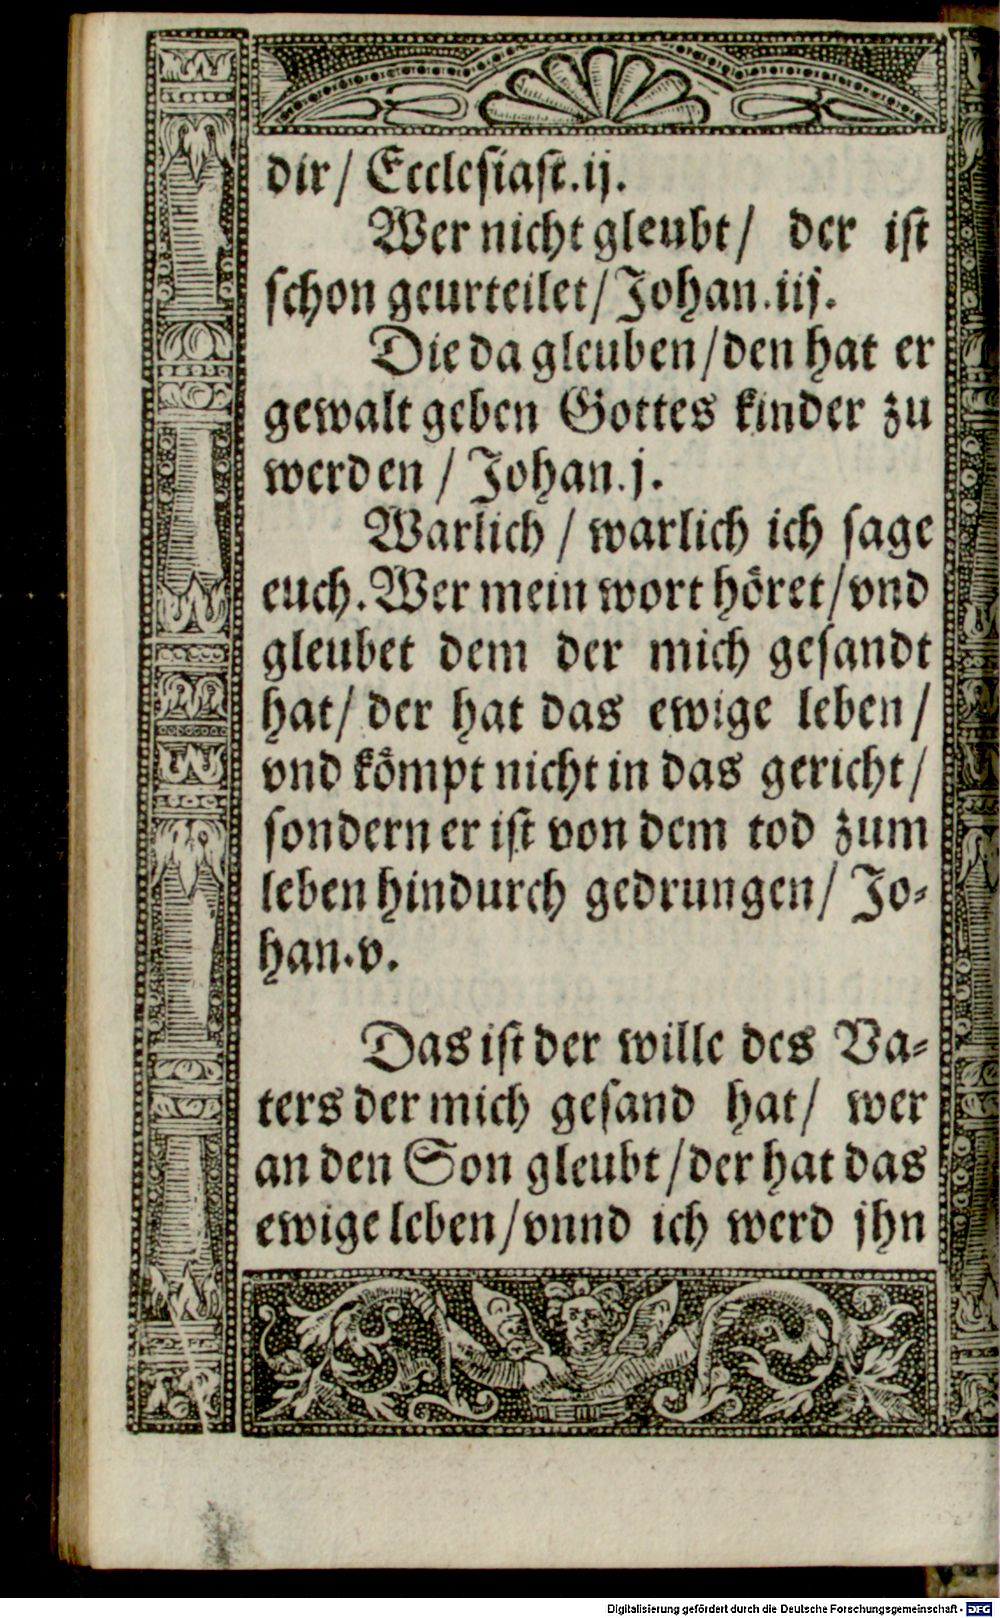 dir/ Ecclesiast.ij.
Wer nicht gleubt/ der ist
schon geurteilet/ Johan.iij.
Die da gleuben/ den hat er
gewalt geben Gottes kinder zu
werden / Johan.j.
Warlich / warlich ich sage
euch. Wer mein wort höret/ vnd
gleubet dem der mich gesandt
hat/ der hat das ewige leben/
vnd kömpt nicht in das gericht/
sondern er ist von dem tod zum
leben hindurch gedrungen/ Jo-
han.v.
Das ist der wille des Va-
ters der mich gesand hat/ wer
an den Son gleubt/ der hat das
ewige leben/ vnnd ich werd jhn
Digitalisierung gefördert durch die Deutsche Forschungsgemeinschaft - DFG